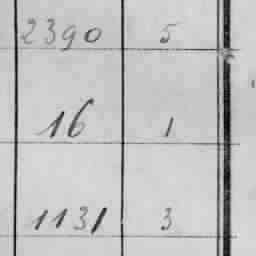 2390 5
16 1
1131 3